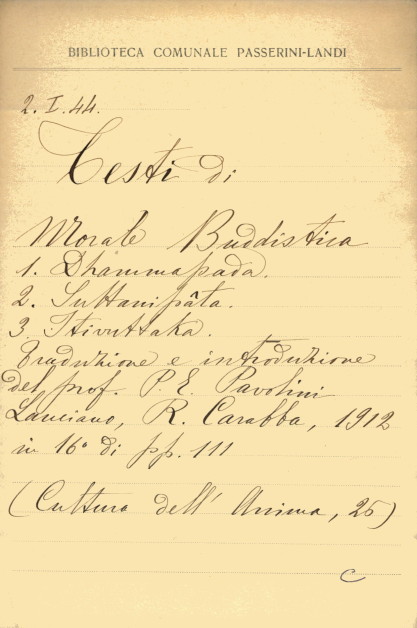 BIBLIOTECA COMUNALE PASSERINI-LANDI
2.I.44.
Testi di
Morale Buddistica
1. Dhammapada.
2. Suttanipâta.
3. Itivuttaka.
Traduzione e introduzione
del prof. P. E. Pavolini
Lanciano, R. Carabba, 1912
in 16° di pp. 111
(Cultura dell' Anima, 25)
C